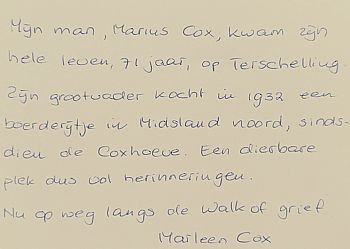 Mijn man, Marius Cox, kwam zijn
hele leven, 71 jaar, op Terschelling.
Zijn grootvader kocht in 1932 een
boerderijtje in Midsland noord, sinds-
dien de Coxhoeve. Een dierbare
plek dus vol herinneringen.
Nu op weg langs de Walk of grief
Marleen Cox